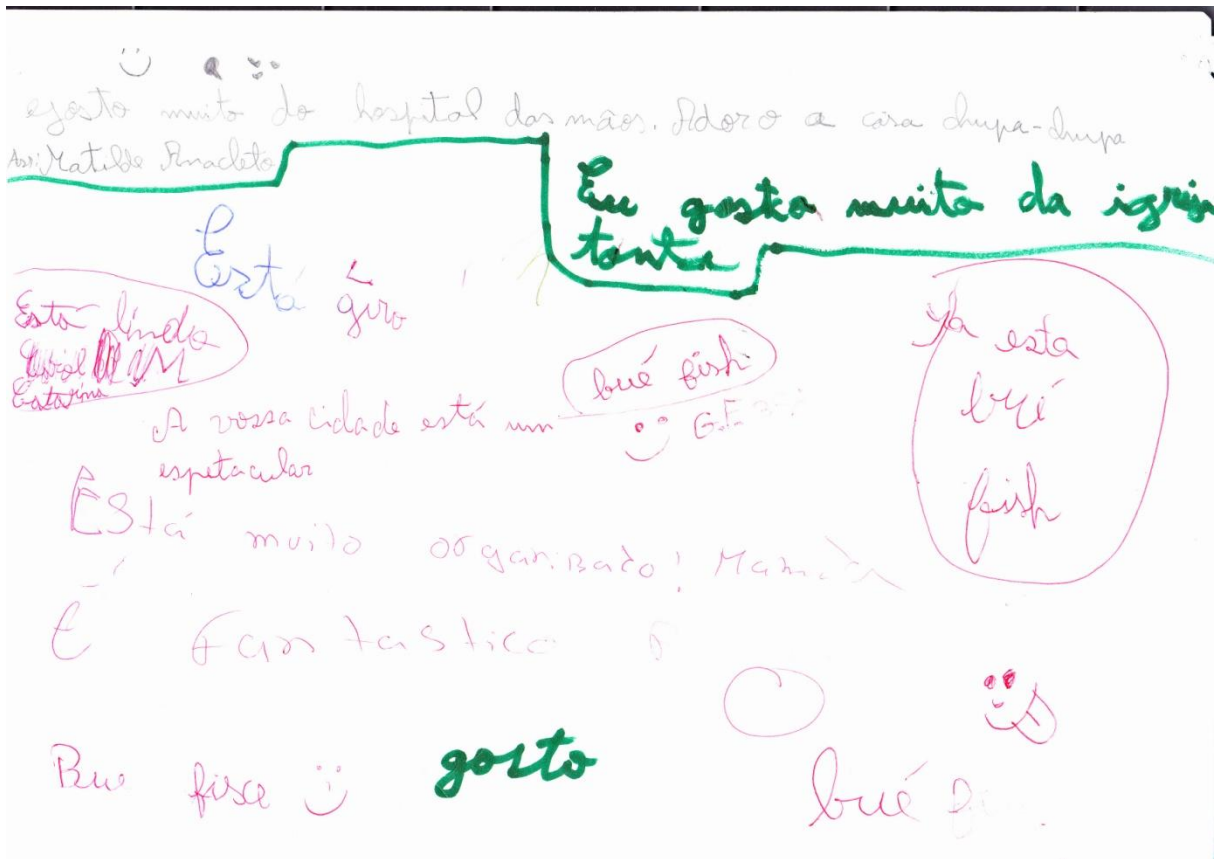 gosto muito do hospital das mãos. Adoro a casa chupa-chupa
Ass: Matilde Anacleto
Eu gosto muito da igreja
tonta
Está giro
Está linda
Catarina
bué fish
Ya esta
bué
fish
A vossa cidade está um
espetacular
EStá muito organizado!
É Fantastico
Bue fisce
gosto
bué